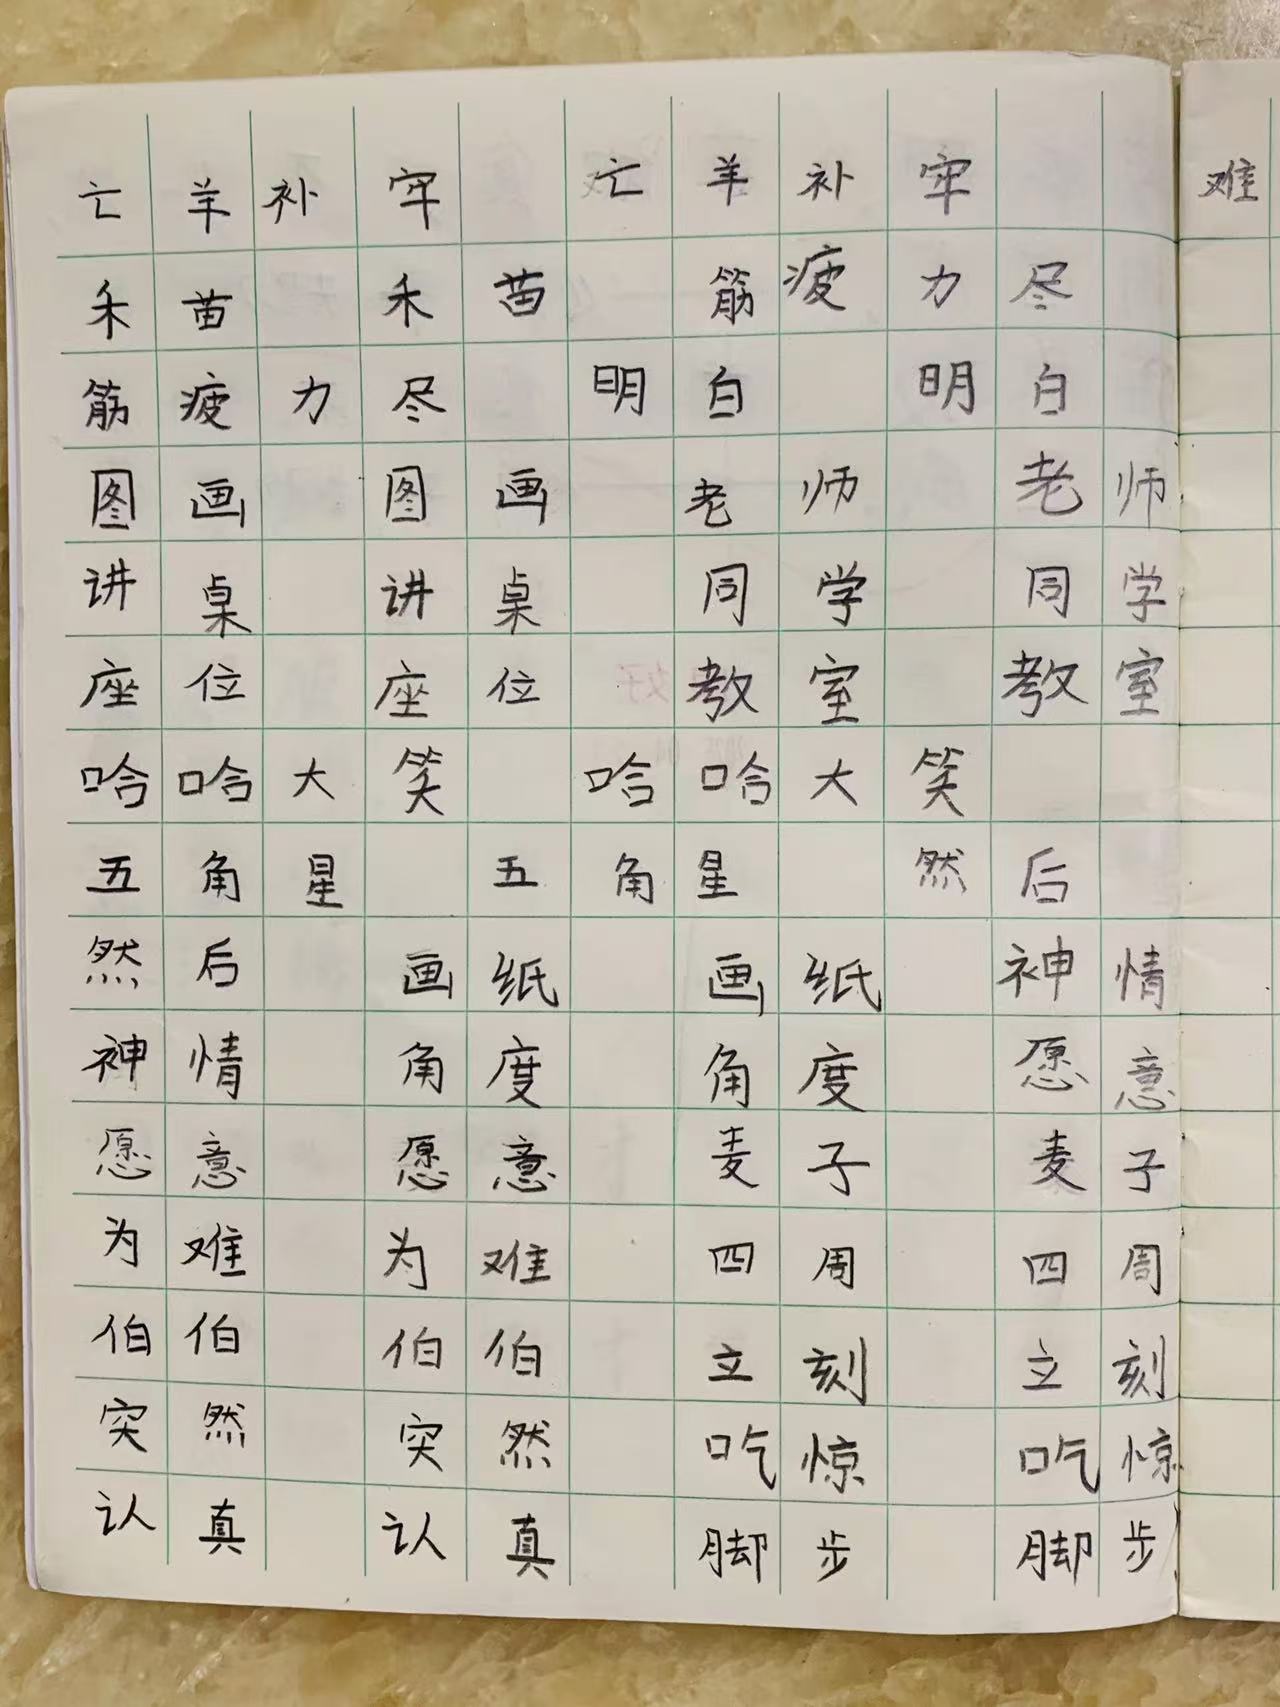 亡羊补牢 亡羊补牢 难
禾苗 禾苗 筋疲力尽
筋疲力尽 明白 明白
图画 图画 老师 老师
讲桌 讲桌 同学 同学
座位 座位 教室 教室
哈哈大笑 哈哈大笑
五角星 五角星 然后
然后 画纸 画纸 神情
神情 角度 角度 愿意
愿意 愿意 麦子 麦子
为难 为难 四周 四周
伯伯 伯伯 立刻 立刻
突然 突然 吃惊 吃惊
认真 认真 脚步 脚步